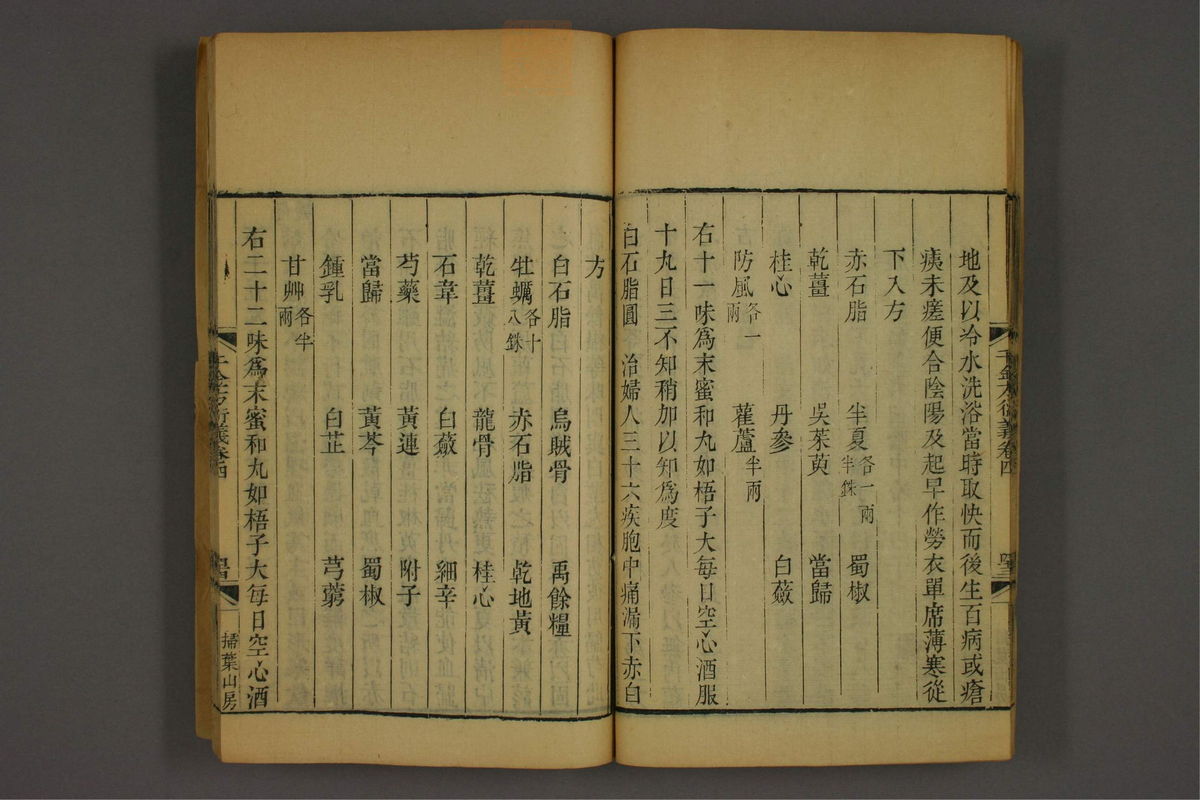 地及以冷水洗浴當時取快而後生百病或瘡
痍未瘥便合陰陽及起早作勞衣單席薄寒從
下入方
赤石脂 半夏各一兩半銖 蜀椒
乾薑 吳茱萸 當歸
桂心 丹參 白蘞
防風各一兩 雚蘆半兩
右十一味爲末蜜和丸如梧子大每日空心酒服
十丸日三不知稍加以知爲度
白石脂圓 治婦人三十六疾胞中痛漏下赤白
方
白石脂 烏賊骨 禹餘糧
牡蠣各十八銖 赤石脂 乾地黃
乾薑 龍骨 桂心
石韋 白蘞 細辛
芍藥 黃連 附子
當歸 黃芩 蜀椒
鍾乳 白芷 芎藭
甘艸各半兩
右二十二味爲末蜜和丸如梧子大每日空心酒
千金方衍義卷四
掃葉山房